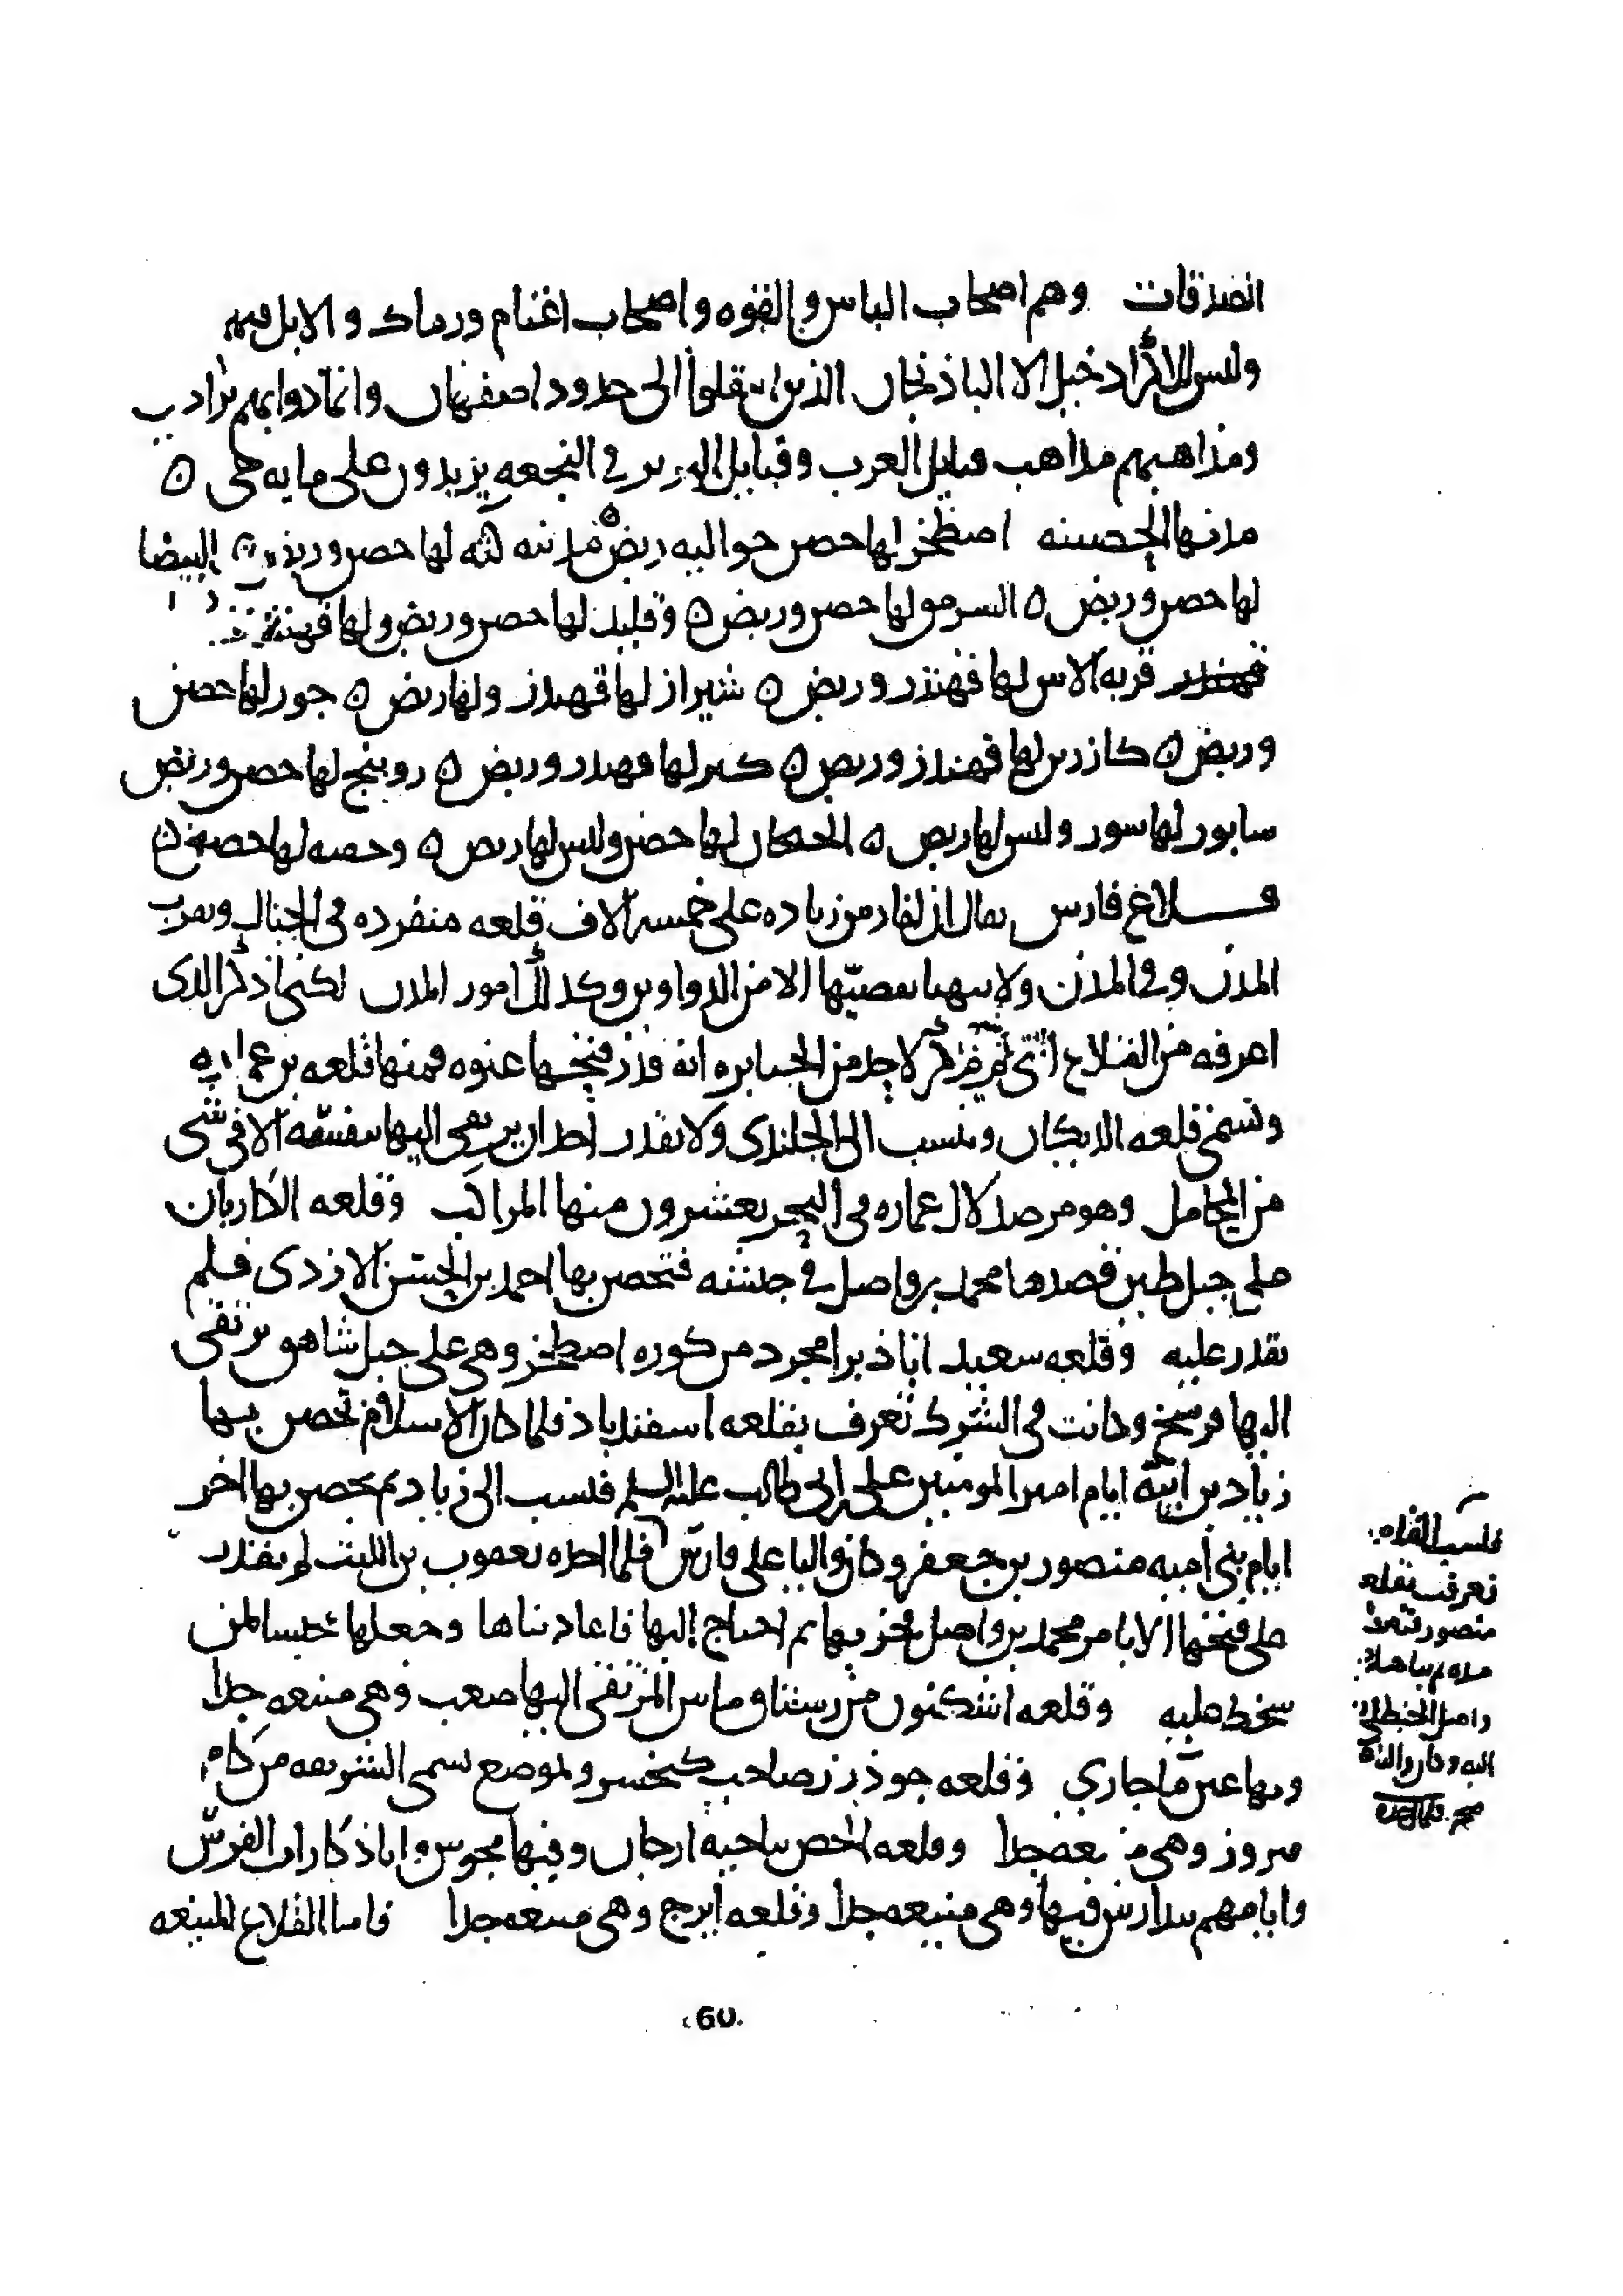 الصدقات وهم اصحاب الباس والقوه واصحاب اغنام ورماك والابل فيهم
وليس للاكراد خيل الا الباذنجان الذين انتقلوا الى حدود اصفهان وانما دوابهم براذين
ومذاهبهم مذاهب قبايل العرب وقبايل البربر في النجعه يزيدون على مايه حي ٥
مدنها الحصينه اصطخر لها حصن حواليه ربض ٥ مدينه كثه لها حصن وربض ٥ البيضا
لها حصن وربض ٥ السرمق لها حصن وربض ٥ وقليد لها حصن وربض ولها قهندز
قهندز قريه الاس لها قهندز وربض ٥ شيراز لها قهندز ولها ربض ٥ جور لها حصن
وربض ٥ كازرين لها قهندز وربض ٥ كير لها قهندز وربض ٥ روبنج لها حصن وربض
سابور لها سور وليس لها ربض ٥ الجنجان لها حصن وليس لها ربض ٥ وجفنه لها حصن ٥
قلاع فارس يقال ان لفارس زياده على خمسه آلاف قلعه منفرده في الجبال وبقرب
المدن وفي المدن ولا يتهيا تقصيها الا من الدواوين وكذلك امور المدن لكني اذكر الذي
اعرفه من القلاع التي لم يذكر لاحد من الجبابره انه قدر فتحها عنوه فمنها قلعه بن عماره
وتسمى قلعه الديكان وينسب الى الجلندى ولا يقدر احد ان يرتقي اليها بنفسه الا في شي
من المحامل وهو مرصد لآل عماره في البحر يعشرون منها المراكب وقلعه الكاريان
على جبل طين قصدها محمد بن واصل في جيشه فتحصن بها احمد بن الحسن الازدى فلم
يقدر عليه وقلعه سعيد اباذ برامجرد من كوره اصطخر وهي على جبل شاهق يرتقى
اليها فرسخ وكانت في الشرك تعرف بقلعه اسفندباذ فلما كان الاسلام تحصن بها
زياد بن ابيه ايام امير المومنين علي بن ابي طالب عليه السلم فنسب الى زياد ثم تحصن بها اخر
ايام بني اميه منصور بن جعفر وكان واليا على فارس فلما اخذه يعقوب بن الليث لم يقدر
على فتحها الا بامر محمد بن واصل فخربها ثم احتاج اليها فاعاد بناها وجعلها محبسا لمن
سخط عليه وقلعه اشكنون من رستاق ماين المرتقى اليها صعب وهي منيعه جدا
وبها عين ما جاري وقلعه جوذرز صاحب كيخسرو بموضع يسمى الشويقه من كام
فيروز وهي منيعه جدا وقلعه الجص بناحيه ارجان وفيها مجوس واياذكارات الفرس
وايامهم يتدارس فيها وهي منيعه جدا وقلعه ايرج وهي منيعه جدا فاما القلاع المنيعه
فنسب القلعه
تعرف بقلعه
منصور فتعطل
مده ثم بناها
واصل الحنظلي
اليه وكان واليا
60